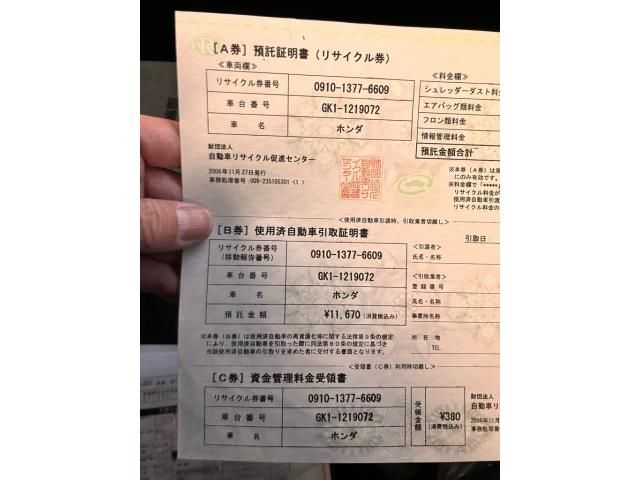 [A券] 預託証明書(リサイクル券)
≪車両欄≫
リサイクル券番号 0910-1377-6609
車台番号 GK1-1219072
車名 ホンダ
≪料金欄≫
シュレッダーダスト料
エアバッグ類料金
フロン類料金
情報管理料金
預託金額合計
財団法人
自動車リサイクル促進センター
2006年11月27日発行
※本券(A券)は車
にのみ有効です。
※料金欄で「*****」
リサイクル料金が
リサイクル料金の
<使用済自動車引渡時、引取業者切離し>
[B券] 使用済自動車引取証明書
引取日:
リサイクル券番号 0910-1377-6609
(移動報告番号)
車台番号 GK1-1219072
車名 ホンダ
預託金額 ¥11,670 (消費税込み)
<引渡者>
氏名・名称
<引取業者>
登録番号
氏名・名称
事業所名
所在地
TEL.
※本券(B券)は使用済自動車の再資源化等に関する法律第9条の規定
により、使用済自動車を引取った際に同法第80条の規定に基づき
当該使用済自動車の引取りを求めた者に交付する書面となります。
<受領書(C券)利用時切離し>
[C券] 資金管理料金受領書
リサイクル券番号 0910-1377-6609
車台番号 GK1-1219072
車名 ホンダ
受領金額
¥380
(消費税込み)
財団法人
自動車リ
2006年11月
事務処理番